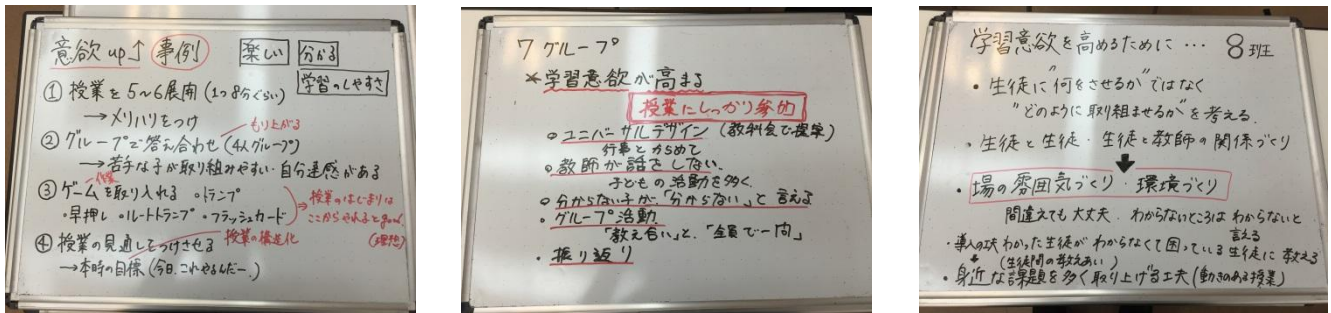 意欲up↑ 事例 楽しい 分かる
学習のしやすさ
① 授業を5~6展開 (1つ8分くらい)
→メリハリをつけ
もり上がる
② グループで答え合わせ (4人グループ)
→苦手な子が取り組みやすい・自分達感がある
作業
③ ゲームを取り入れる ○トランプ
・早押し ○ルートトランプ ・フラッシュカード
⇒授業のはじまりは
ここからやれるとgood
(理想)
④ 授業の見通しをつけさせる 授業の構造化
→本時の目標 (今日、これやるんだー、)
7グループ
*学習意欲が高まる
授業にしっかり参加
○ユニバーサルデザイン (教科会で提案)
行事とからめて
○教師が話をしない。
子どもの活動を多く
○分からない子が、「分からない」と言える
・グループ活動
「教え合い」と、「全員で一問」
・振り返り
学習意欲を高めるために… 8班
・生徒に"何をさせるか"ではなく
"どのように取り組ませるか"を考える
・生徒と生徒・生徒と教師の関係づくり
・場の雰囲気づくり・環境づくり
間違えても大丈夫、わからないところはわからないと
言える
・導入の工夫 わかった生徒がわからなくて困っている生徒に教える
(生徒間の教えあい)
・身近な課題を多く取り上げる工夫 (動きのある授業)